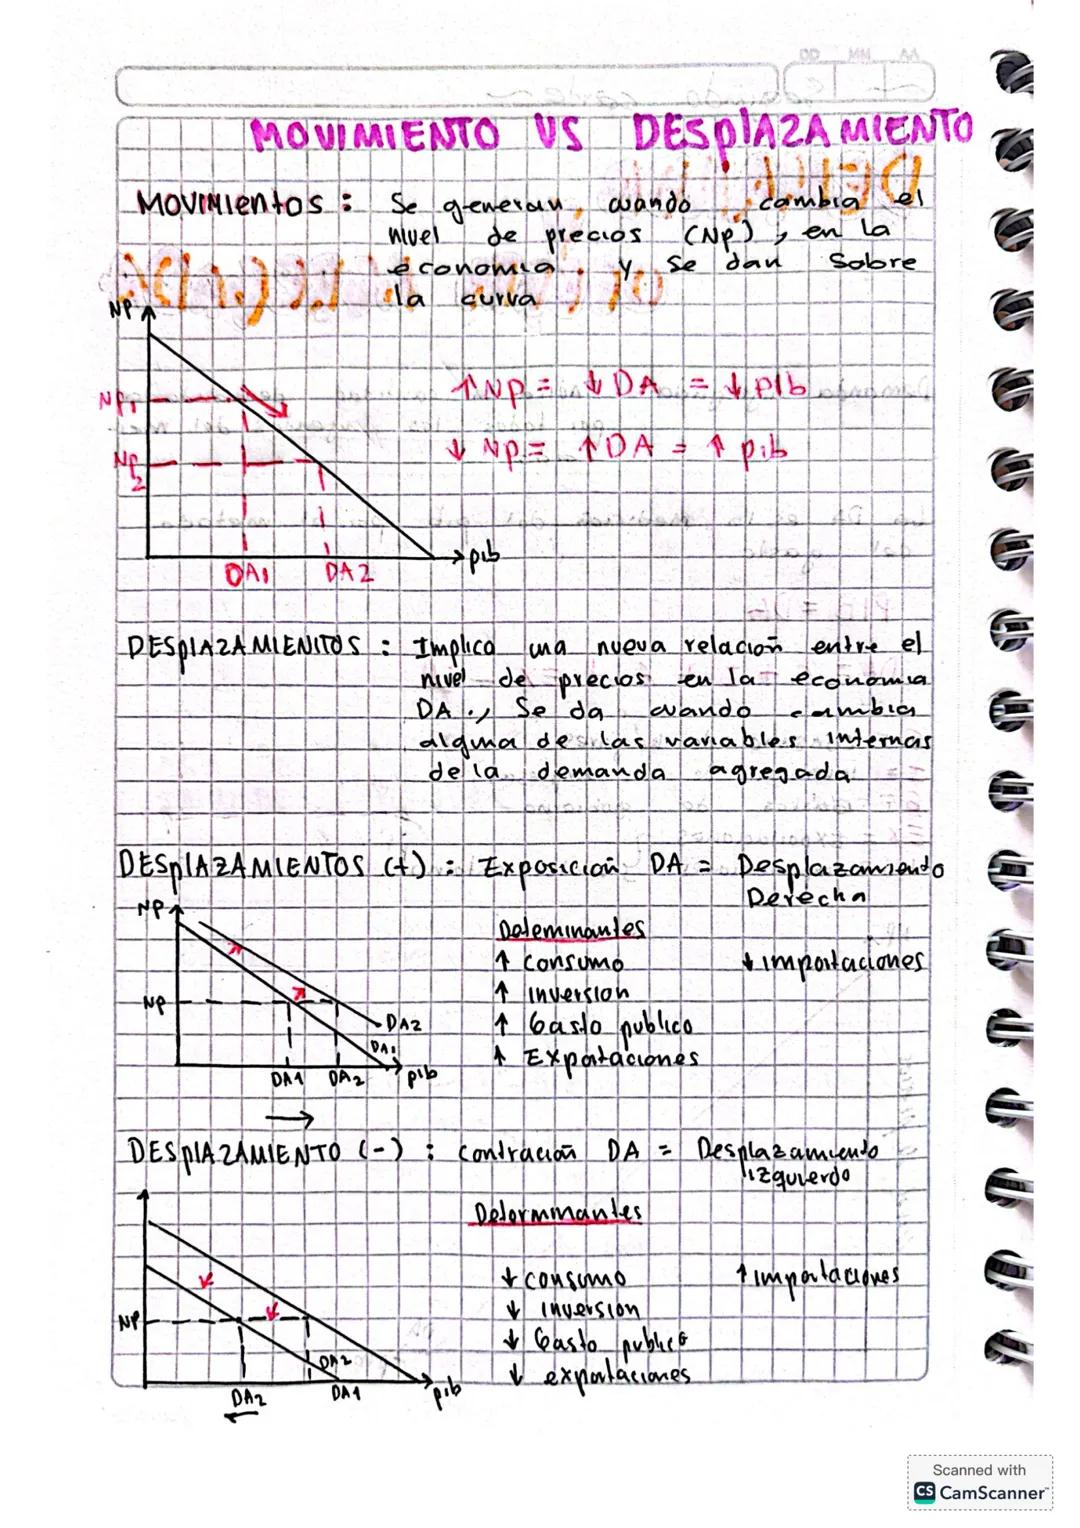 DD MM AA
MOVIMIENTO VS DESPlAZAMIENTO
MOVIMIentos : Se generan, cuando cambia el
nivel de precios (Np), en la
economia. y se dan sobre
la curva
NP
NP1
NP2
DA1
DA2
pib
↑NP = ↓DA = ↓PIb
↓ Np = ↑DA = ↑ pib
DESplAZAMIENITOS : Implica una nueva relacion entre el
nivel de precios en la economia
DA., Se da cuando cambia
alguna de las variables internas
de la demanda agregada
DESplAZAMIENTOS (+) : Exposicion DA = Desplazamiendo
Derecha
NP
NP
DA2
DA1
DA1
DA2
pib
Deleminantes
↑ consumo
↓ importaciones
↑ inversion
↑ Gasto publico
↑ Expotaciones
DESplAZAMIENTO (-) : contracion DA = Desplazamiento
izquierdo
NP
DA2
DA2
DA1
pib
Determinantes
↓ consumo
↑ importaciones
↓ inversion
↓ Gasto publico
↓ exportaciones
Scanned with
CS CamScanner